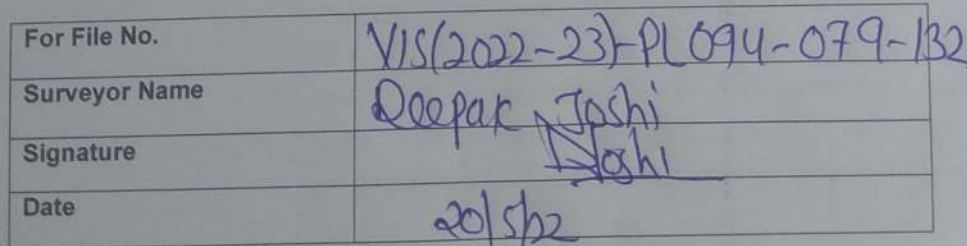 For File No. VIS(2022-23)-PL094-079-132
Surveyor Name Deepak Joshi
Signature Joshi
Date 20/5/22